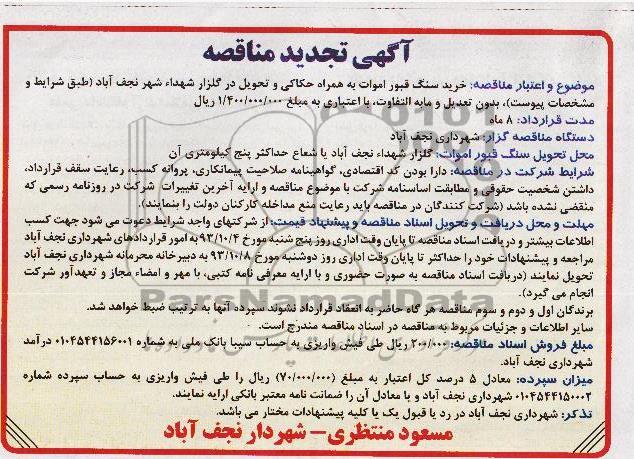 آگهی تجدید مناقصه
موضوع و اعتبار مناقصه: خرید سنگ قبور اموات به همراه حکاکی و تحویل در گلزار شهداء شهر نجف آباد (طبق شرایط و
مشخصات پیوست)، بدون تعدیل و مابه التفاوت، با اعتباری به مبلغ ۱/۴۰۰/۰۰۰/۰۰۰ ریال
مدت قرارداد: ۸ ماه
دستگاه مناقصه گزار: شهرداری نجف آباد
محل تحویل سنگ قبور اموات: گلزار شهداء نجف آباد با شعاع حداکثر پنج کیلومتری آن
شرایط شرکت در مناقصه: دارا بودن کد اقتصادی، گواهینامه صلاحیت پیمانکاری، پروانه کسب، رعایت سقف قرارداد،
داشتن شخصیت حقوقی و مطابقت اساسنامه شرکت با موضوع مناقصه و ارایه آخرین تغییرات شرکت در روزنامه رسمی که
منقضی نشده باشد (شرکت کنندگان در مناقصه باید رعایت منع مداخله کارکنان دولت را بنمایند).
مهلت و محل دریافت و تحویل اسناد مناقصه و پیشنهاد قیمت: از شرکتهای واجد شرایط دعوت می شود جهت کسب
اطلاعات بیشتر و دریافت اسناد مناقصه تا پایان وقت اداری روز پنج شنبه مورخ ۹۳/۱۰/۴ به امور قراردادهای شهرداری نجف آباد
مراجعه و پیشنهادات خود را حداکثر تا پایان وقت اداری روز دوشنبه مورخ ۹۳/۱۰/۸ به دبیرخانه محرمانه شهرداری نجف آباد
تحویل نمایند (دریافت اسناد مناقصه به صورت حضوری و با ارایه معرفی نامه کتبی، با مهر و امضاء مجاز و تعهدآور شرکت
انجام می گیرد).
برندگان اول و دوم و سوم مناقصه هر گاه حاضر به انعقاد قرارداد نشوند سپرده آنها به ترتیب ضبط خواهد شد.
سایر اطلاعات و جزئیات مربوط به مناقصه در اسناد مناقصه مندرج است.
مبلغ فروش اسناد مناقصه: ۲۰۰/۰۰۰ ریال طی فیش واریزی به حساب سیبا بانک ملی به شماره ۰۱۰۴۵۴۴۱۵۶۰۰۱ درآمد
شهرداری نجف آباد.
میزان سپرده: معادل ۵ درصد کل اعتبار به مبلغ (۷۰/۰۰۰/۰۰۰) ریال را طی فیش واریزی به حساب سپرده شماره
۰۱۰۴۵۴۴۱۵۰۰۰۲ شهرداری نجف آباد و یا معادل آن را ضمانت نامه معتبر بانکی ارایه نمایند.
تذکر: شهرداری نجف آباد در رد یا قبول یک یا کلیه پیشنهادات مختار می باشد.
مسعود منتظری - شهردار نجف آباد
ParsNamadData